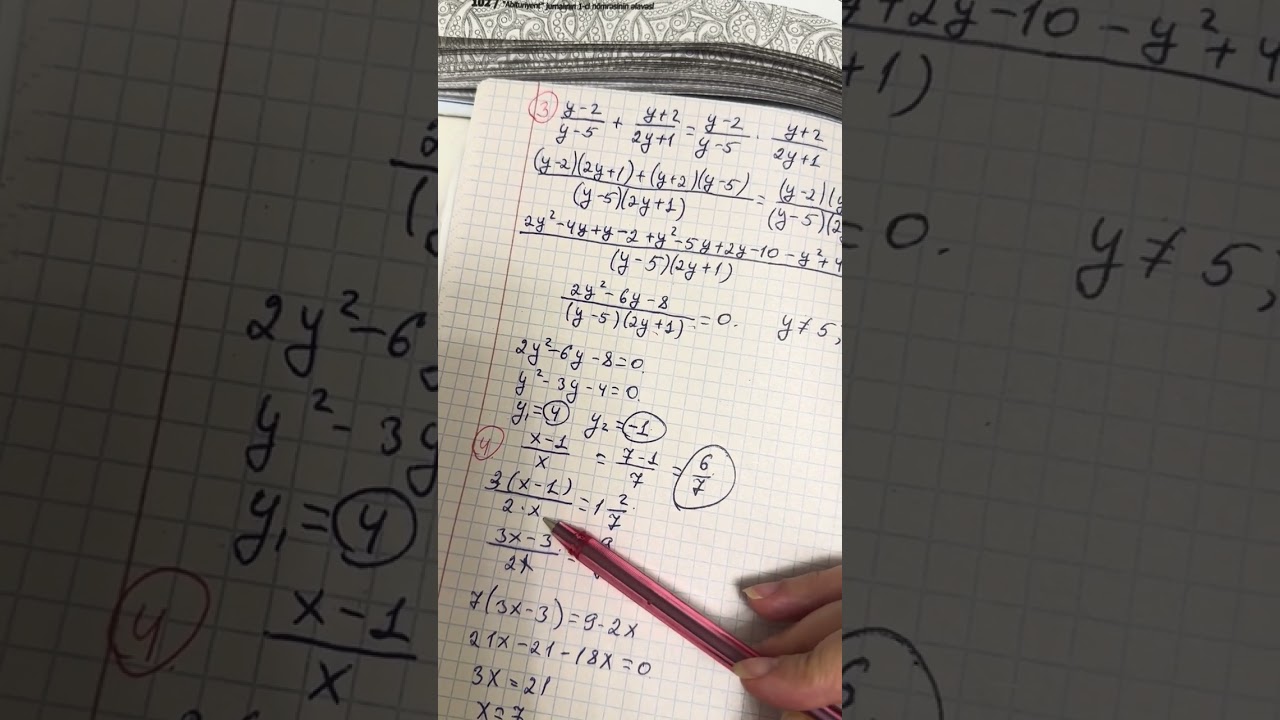 102 / "Abituriyent" jurnalının 1-ci nömrəsinin əlavəsi
3 (y-2)/(y-5) + (y+2)/(2y+1) = (y-2)/(y-5) · (y+2)/(2y+1)
((y-2)(2y+1)+(y+2)(y-5))/((y-5)(2y+1)) = (y-2)( / (y-5)(2
(2y²-4y+y-2+y²-5y+2y-10-y²+4 / (y-5)(2y+1)
(2y²-6y-8)/((y-5)(2y+1)) = 0. y≠5;
2y²-6y-8=0.
y²-3y-4=0.
y₁=4 y₂=-1
4 (x-1)/x = (7-1)/7 = 6/7
3(x-1)/(2·x) = 1 2/7.
(3x-3)/(2x) = 9
7(3x-3)=9·2x
21x-21-18x=0
3x=21
x=7
y+2y-10-y²+4
+1)
=0. y≠5;
2y²-6
y²-3y
y₁=4
4 (x-1)/x